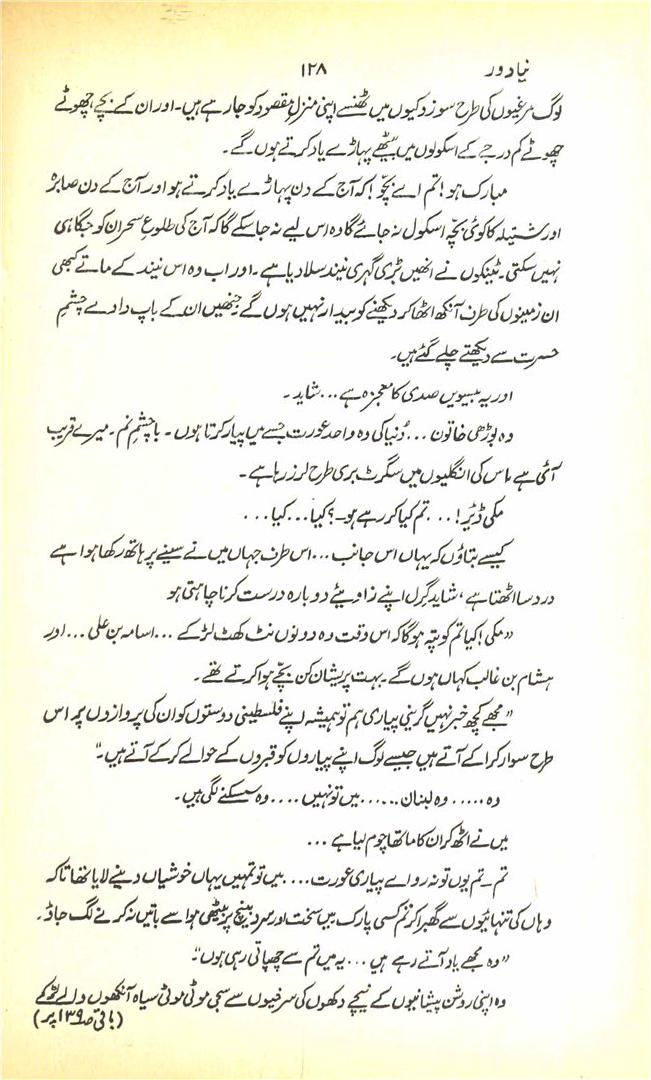 نیا دور ۱۲۸
لوگ مرغیوں کی طرح سوزوکیوں میں ٹھنسے اپنی منزلِ مقصود کو جا رہے ہیں۔ اور ان کے بچے، چھوٹے
چھوٹے کم درجے کے اسکولوں میں بیٹھے پہاڑے یاد کرتے ہوں گے۔
مبارک ہو! تم اے بچّو! کہ آج کے دن پہاڑے یاد کرتے ہو اور آج کے دن صابرہ
اور شتیلہ کا کوئی بچّہ اسکول نہ جائے گا وہ اس لیے نہ جا سکے گا کہ آج کی طلوعِ سحر ان کو جگا ہی
نہیں سکتی۔ ٹینکوں نے انھیں بڑی گہری نیند سلا دیا ہے۔ اور اب وہ اس نیند کے ماتے کبھی
ان زمینوں کی طرف آنکھ اٹھا کر دیکھنے کو بیدار نہیں ہوں گے جنھیں ان کے باپ دادے چشمِ
حسرت سے دیکھتے چلے گئے ہیں۔
اور یہ بیسویں صدی کا معجزہ ہے ... شاید۔
وہ بوڑھی خاتون ... دُنیا کی وہ واحد عورت جسے میں پیار کرتا ہوں۔ با چشمِ نم۔ میرے قریب
آئی ہے، اس کی انگلیوں میں سگرٹ بری طرح لرز رہا ہے۔
مکی ڈیئر! ... تم کیا کر رہے ہو۔؟ کیا ... کیا ...
کیسے بتاؤں کہ یہاں اس جانب ... اس طرف جہاں میں نے سینے پر ہاتھ رکھا ہوا ہے
درد سا اٹھتا ہے، شاید گِرل اپنے زاویئے دوبارہ درست کرنا چاہتی ہو
"مکی! کیا تم کو پتہ ہوگا کہ اس وقت وہ دونوں نٹ کھٹ لڑکے ... اسامہ بن علی ... اور
ہشام بن غالب کہاں ہوں گے۔ بہت پریشان کن بچّے ہوا کرتے تھے۔
"مجھے کچھ خبر نہیں گرینی پیاری ہم تو ہمیشہ اپنے فلسطینی دوستوں کو ان کی پروازوں پر اس
طرح سوار کرا کے آتے ہیں جیسے لوگ اپنے پیاروں کو قبروں کے حوالے کر کے آتے ہیں۔"
وہ ..... وہ لبنان ...... میں تو نہیں .... وہ سسکنے لگی ہیں۔
میں نے اٹھ کر ان کا ماتھا چوم لیا ہے ...
تم۔ تم یوں تو نہ رو اے پیاری عورت .... میں تو تمہیں یہاں خوشیاں دینے لایا تھا تاکہ
وہاں کی تنہائیوں سے گھبرا کر تم کسی پارک میں سخت اور سرد بینچ پر بیٹھی ہوا سے باتیں نہ کرنے لگ جاؤ۔
"وہ مجھے یاد آتے رہے ہیں ... یہ میں تم سے چھپاتی رہی ہوں"۔
وہ اپنی روشن پیشانیوں کے نیچے دکھوں کی سرخیوں سے سجی موٹی موٹی سیاہ آنکھوں والے لڑکے
(باقی ص ۱۳۹ پر)